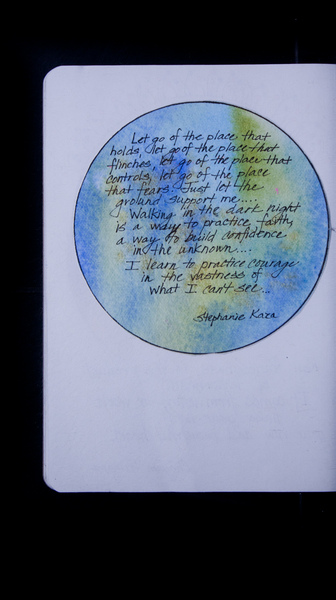 Let go of the place that
holds, let go of the place that
flinches, let go of the place that
controls, let go of the place
that fears. Just let the
ground support me....
Walking in the dark night
is a way to practice faith,
a way to build confidence
in the unknown....
I learn to practice courage
in the vastness of
what I can't see...
Stephanie Kaza